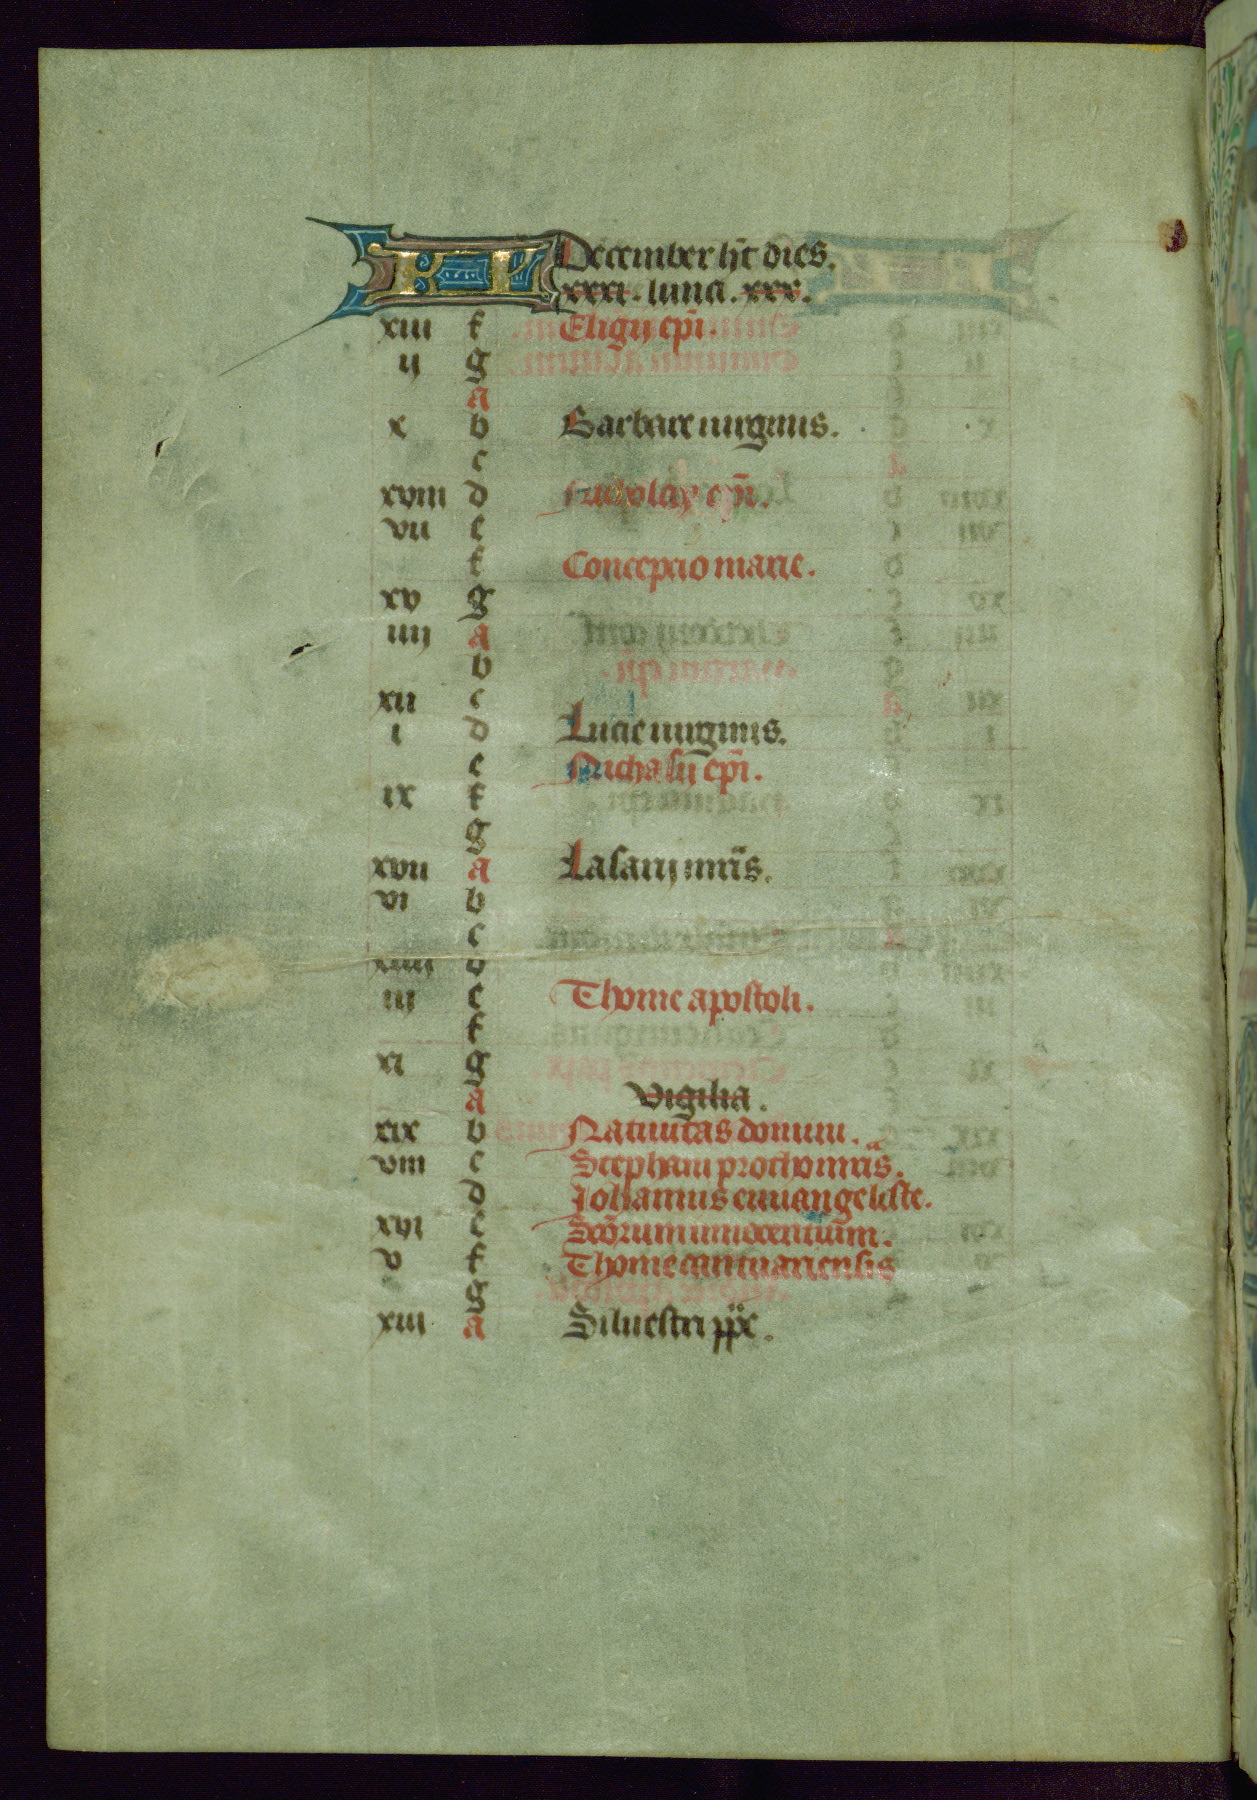 KL December h̄t dies.
xxxi. luna. xxx.
xiii f Eligij ep̄i.
ij g
a
x b Barbare uirginis.
c
xviii d Nicholay ep̄i.
vii e
f Concepcio marie.
xv g
iiij a
b
xii c
i d Lucie uirginis.
e Nichasij ep̄i.
ix f
g
xvii a Lasarij mr̄is.
vi b
c
xiiij d
iii e Thome apostoli.
f
xi g
a Vigilia.
xix b Natiuitas domini.
viii c Stephani prothomr̄is.
d Johannis euuangeliste.
xvi e Sc̄orum innocentium.
v f Thome cantuariensis
g
xiii a Siluestri pp̄e.